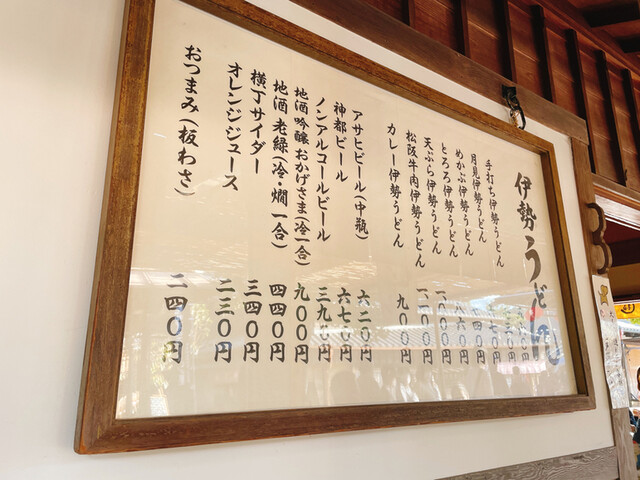 伊勢うどん
手打ち伊勢うどん
月見伊勢うどん
めかぶ伊勢うどん
とろろ伊勢うどん
天ぷら伊勢うどん
松阪牛肉伊勢うどん
カレー伊勢うどん 九〇〇円
アサヒビール（中瓶） 六二〇円
神都ビール 六七〇円
ノンアルコールビール 三九〇円
地酒 吟醸 おかげさま（冷一合） 九〇〇円
地酒 老緑（冷・燗 一合） 四四〇円
横丁サイダー 三四〇円
オレンジジュース 二三〇円
おつまみ（板わさ） 二四〇円